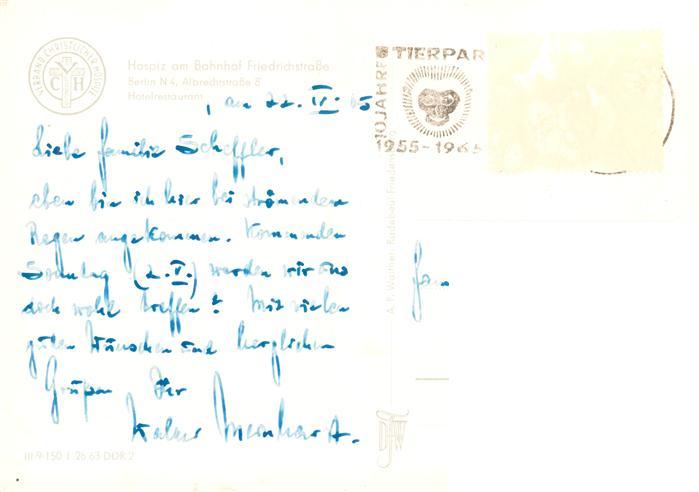 VERBAND CHRISTLICHER HOSPIZE
C H
Hospiz am Bahnhof Friedrichstraße
Berlin N 4, Albrechtstraße 8
Hotelrestaurant
, am 22. IV. 65
Liebe Familie Scheffler,
eben bin ich hier bei strömendem
Regen angekommen. Kommenden
Sonntag (2. V.) werden wir uns
doch wohl treffen? Mit vielen
guten Wünschen und herzlichen
Grüßen Ihr
10 JAHRE
TIERPAR
1955-1965
Fam
III 9-150 1 26 63 DDR 2